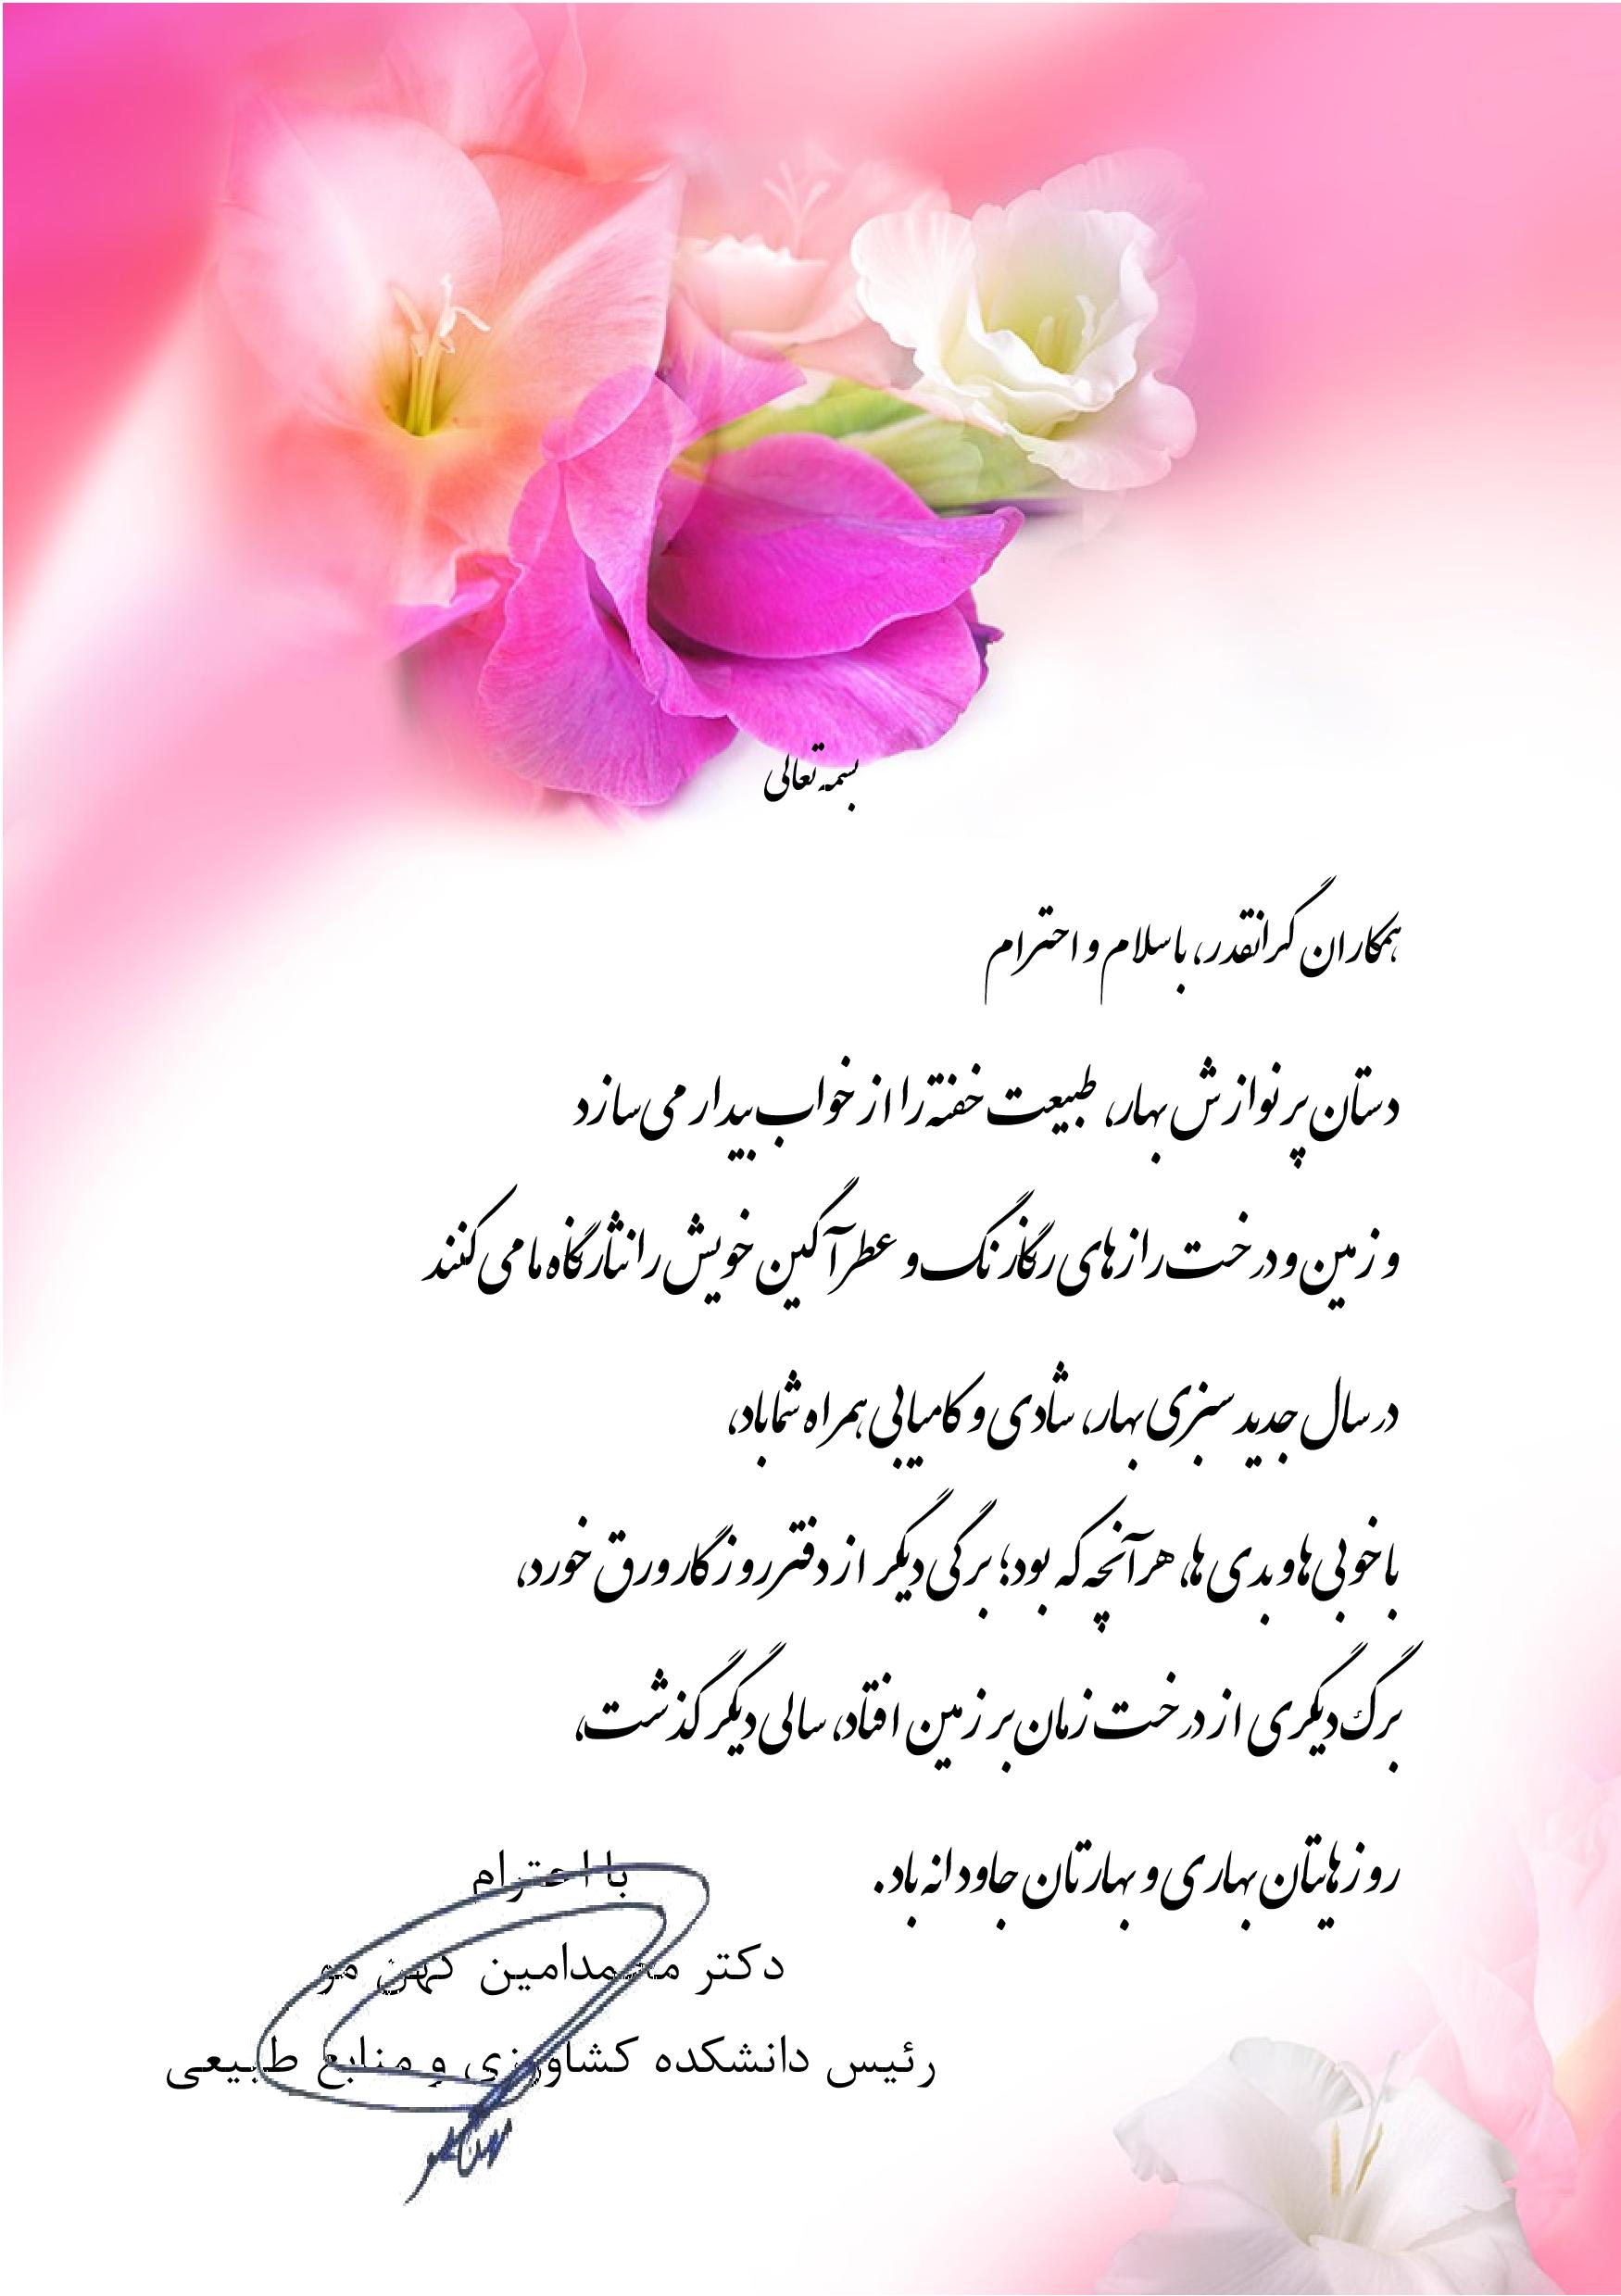 بسمه تعالی
همکاران گرانقدر، با سلام و احترام
دستان پر نوازش بهار، طبیعت خفته را از خواب بیدار می سازد
و زمین و درخت رازهای رنگارنگ و عطرآگین خویش را نثار نگاه ما می کنند
در سال جدید سبزی بهار، شادی و کامیابی همراه شما باد،
با خوبی ها و بدی ها، هر آنچه که بود؛ برگی دیگر از دفتر روزگار ورق خورد،
برگ دیگری از درخت زمان بر زمین افتاد، سالی دیگر گذشت،
روزهایتان بهاری و بهارتان جاودانه باد.
با احترام
دکتر محمدامین کهن مو
رئیس دانشکده کشاورزی و منابع طبیعی